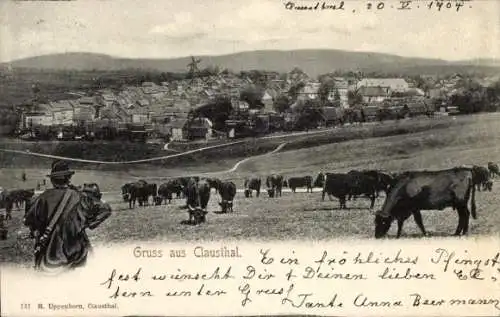 Clausthal, 20. V. 1904.
Gruss aus Clausthal.
Ein fröhliches Pfingst
fest wünscht Dir u. Deinen lieben El
tern unter Gruß Tante Anna Beermann
137 M. Uppenborn, Clausthal.